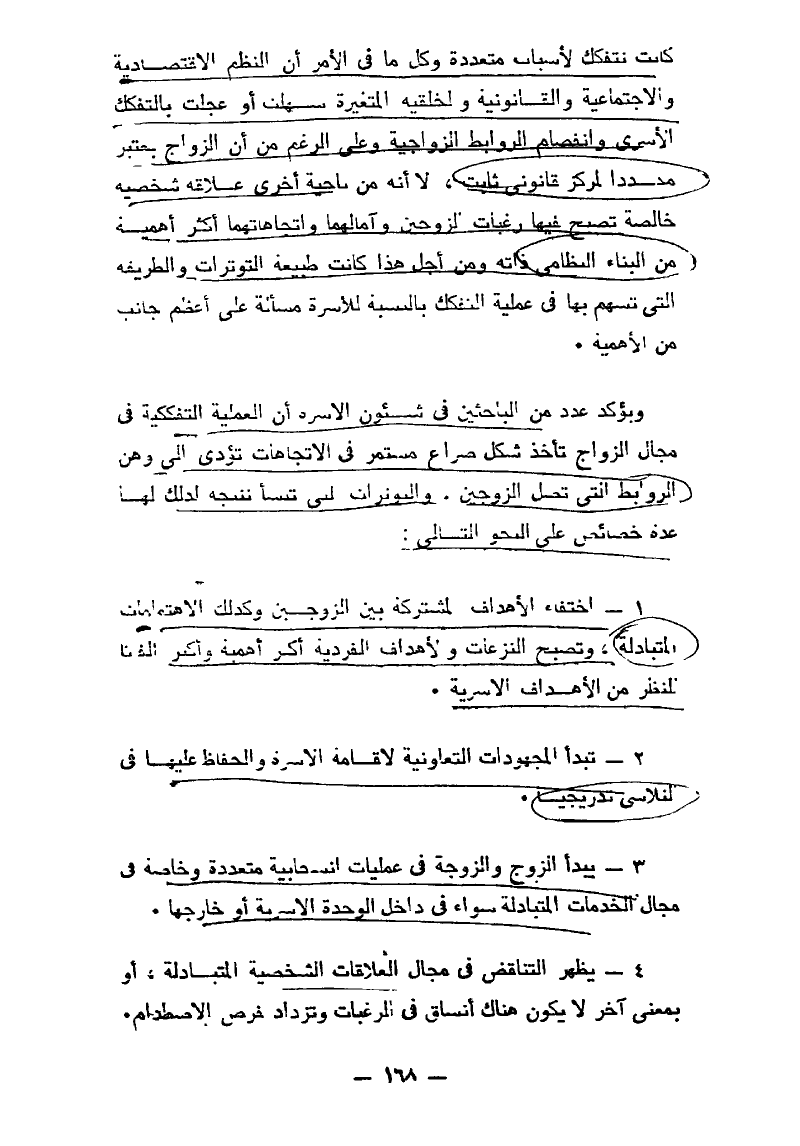 كانت تتفكك لأسباب متعددة وكل ما فى الأمر أن النظم الاقتصادية
والاجتماعية والقانونية والخلقيه المتغيرة سهلت أو عجلت بالتفكك
الأسرى وانفصام الروابط الزواجية وعلى الرغم من أن الزواج يعتبر
محددا لمركز قانونى ثابت ، لا أنه من ناحية أخرى علاقه شخصيه
خالصة تصبح فيها رغبات الزوجين وآمالهما واتجاهاتهما أكثر أهمية
من البناء النظامى ذاته ومن أجل هذا كانت طبيعة التوترات والطريقه
التى تسهم بها فى عملية التفكك بالنسبة للأسرة مسألة على أعظم جانب
من الأهمية .
ويؤكد عدد من الباحثين فى شئون الاسره أن العملية التفككية فى
مجال الزواج تأخذ شكل صراع مستمر فى الاتجاهات تؤدى الى وهن
الروابط التى تصل الزوجين . والتوترات التى تنشأ نتيجه لذلك لها
عدة خصائص على النحو التالى :
١ – اختفاء الأهداف المشتركة بين الزوجين وكذلك الاهتمامات
المتبادلة ، وتصبح النزعات والأهداف الفردية أكثر أهمية وأكثر
للنظر من الأهداف الاسرية .
٢ – تبدأ المجهودات التعاونية لاقامة الاسرة والحفاظ عليها فى
التلاشى تدريجيا .
٣ – يبدأ الزوج والزوجة فى عمليات انسحابية متعددة وخاصة فى
مجال الخدمات المتبادلة سواء فى داخل الوحدة الاسرية أو خارجها .
٤ – يظهر التناقض فى مجال العلاقات الشخصية المتبادلة ، أو
بمعنى آخر لا يكون هناك أنساق فى الرغبات وتزداد فرص الاصطدام .
– ١٦٨ –